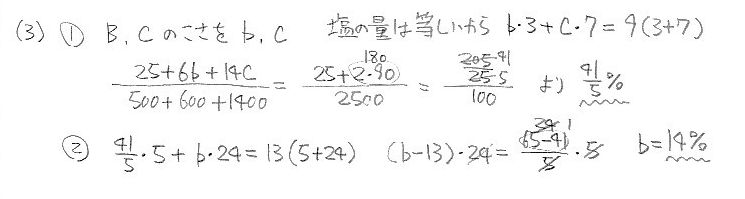 (3) ① B, Cのこさをb, C 塩の量は等しいから b·3+C·7=9(3+7)
25+6b+14C/500+600+1400 = 25+2·90/2500 180 = 205 41/25 5/100 より 41/5%
② 41/5·5+b·24=13(5+24) (b-13)·24=(65-41)/5·5 24 1 b=14%